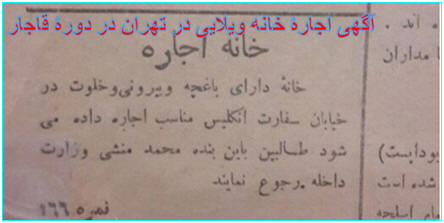 آگهی اجارهٔ خانه ویلایی در تهران در دورهٔ قاجار
خانه اجاره
خانهٔ دارای باغچه و بیرونی و خلوت در
خیابان سفارت انگلیس مناسب اجاره داده می
شود طالبین باین بنده محمد منشی وزارت
داخله رجوع نمایند
نمره ۱۶۶
ه اند .
مداران
بوداست)
شده است
اسلحه